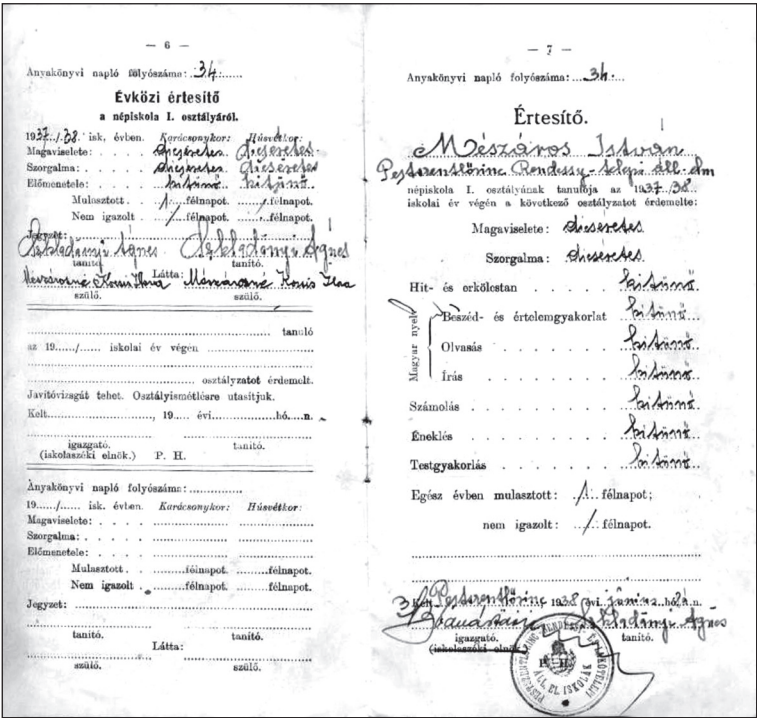 — 6 —
Anyakönyvi napló folyószáma: 34.
Évközi értesítő
a népiskola I. osztályáról.
1937./38. isk. évben. Karácsonykor: Húsvétkor:
Magaviselete: . . . . dicséretes dicséretes
Szorgalma: . . . . dicséretes dicséretes
Előmenetele: . . . . kitünő kitünő
Mulasztott . . 1. félnapot. / félnapot.
Nem igazolt . / félnapot. / félnapot.
Jegyzet:
Szkladányi Ágnes Szkladányi Ágnes
tanító. tanító.
Látta:
Mészárosné Mészárosné
szülő. szülő.
tanuló
az 19....../...... iskolai év végén
osztályzatot érdemelt.
Javítóvizsgát tehet. Osztályismétlésre utasítjuk.
Kelt, 19 évi hó n.
igazgató. tanító.
(iskolaszéki elnök.) P. H.
Anyakönyvi napló folyószáma:
19....../...... isk. évben. Karácsonykor: Húsvétkor:
Magaviselete: . . .
Szorgalma: . . . .
Előmenetele: . . .
Mulasztott . . félnapot. félnapot.
Nem igazolt . félnapot. félnapot.
Jegyzet:
tanító. tanító.
Látta:
szülő. szülő.
— 7 —
Anyakönyvi napló folyószáma: 34.
Értesítő.
Mészáros István
Pestszentlőrinc Rendessy-telepi áll. elm
népiskola I. osztályának tanulója az 1937/38.
iskolai év végén a következő osztályzatot érdemelte:
Magaviselete: dicséretes
Szorgalma: dicséretes
Hit- és erkölcstan . . . . kitünő
Magyar nyelv
Beszéd- és értelemgyakorlat kitünő
Olvasás . . . . . kitünő
Írás . . . . . . kitünő
Számolás . . . . . . . kitünő
Éneklés . . . . . . . kitünő
Testgyakorlás . . . . . kitünő
Egész évben mulasztott: 1. félnapot;
nem igazolt: / félnapot.
Kelt Pestszentlőrinc 1938 évi június hó
Szkladányi Ágnes
igazgató. tanító.
(iskolaszéki elnök)
P. H.
ÁLL. EL. ISKOLÁK